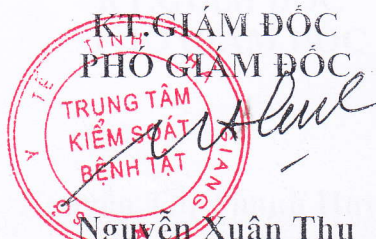 KT.GIÁM ĐỐC
PHÓ GIÁM ĐỐC
SỞ Y TẾ TỈNH GIANG
TRUNG TÂM
KIỂM SOÁT
BỆNH TẬT
Nguyễn Xuân Thu